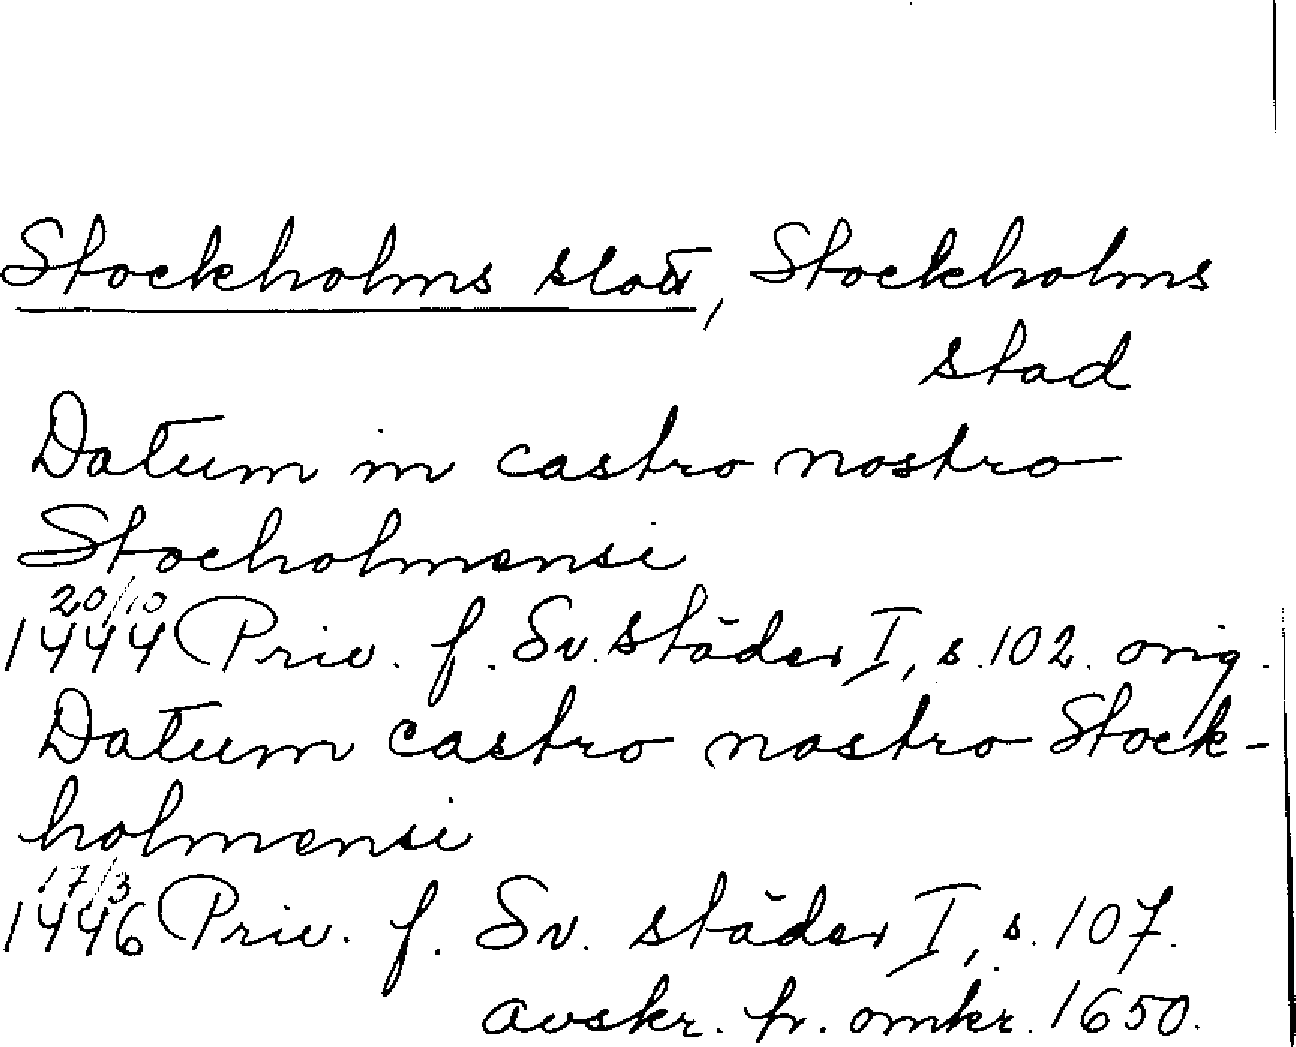 Stockholms slott, Stockholms
stad
Datum in castro nostro
Stocholmensi
20/10
1444 Priv. f. Sv. städer I, s. 102. orig.
Datum castro nostro Stock-
holmensi
17/3
1446 Priv. f. Sv. städer I, s. 107.
avskr. fr. omkr. 1650.